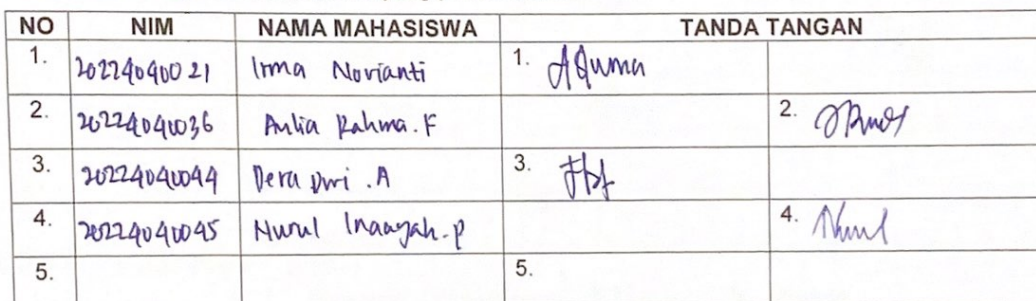 NO NIM NAMA MAHASISWA TANDA TANGAN
1. 20224040021 Irma Novianti 1.
2. 20224040036 Aulia Rahma.F 2.
3. 20224040044 Dera Dwi .A 3.
4. 20224040045 Nurul Inaayah.P 4. Nurul
5. 5.